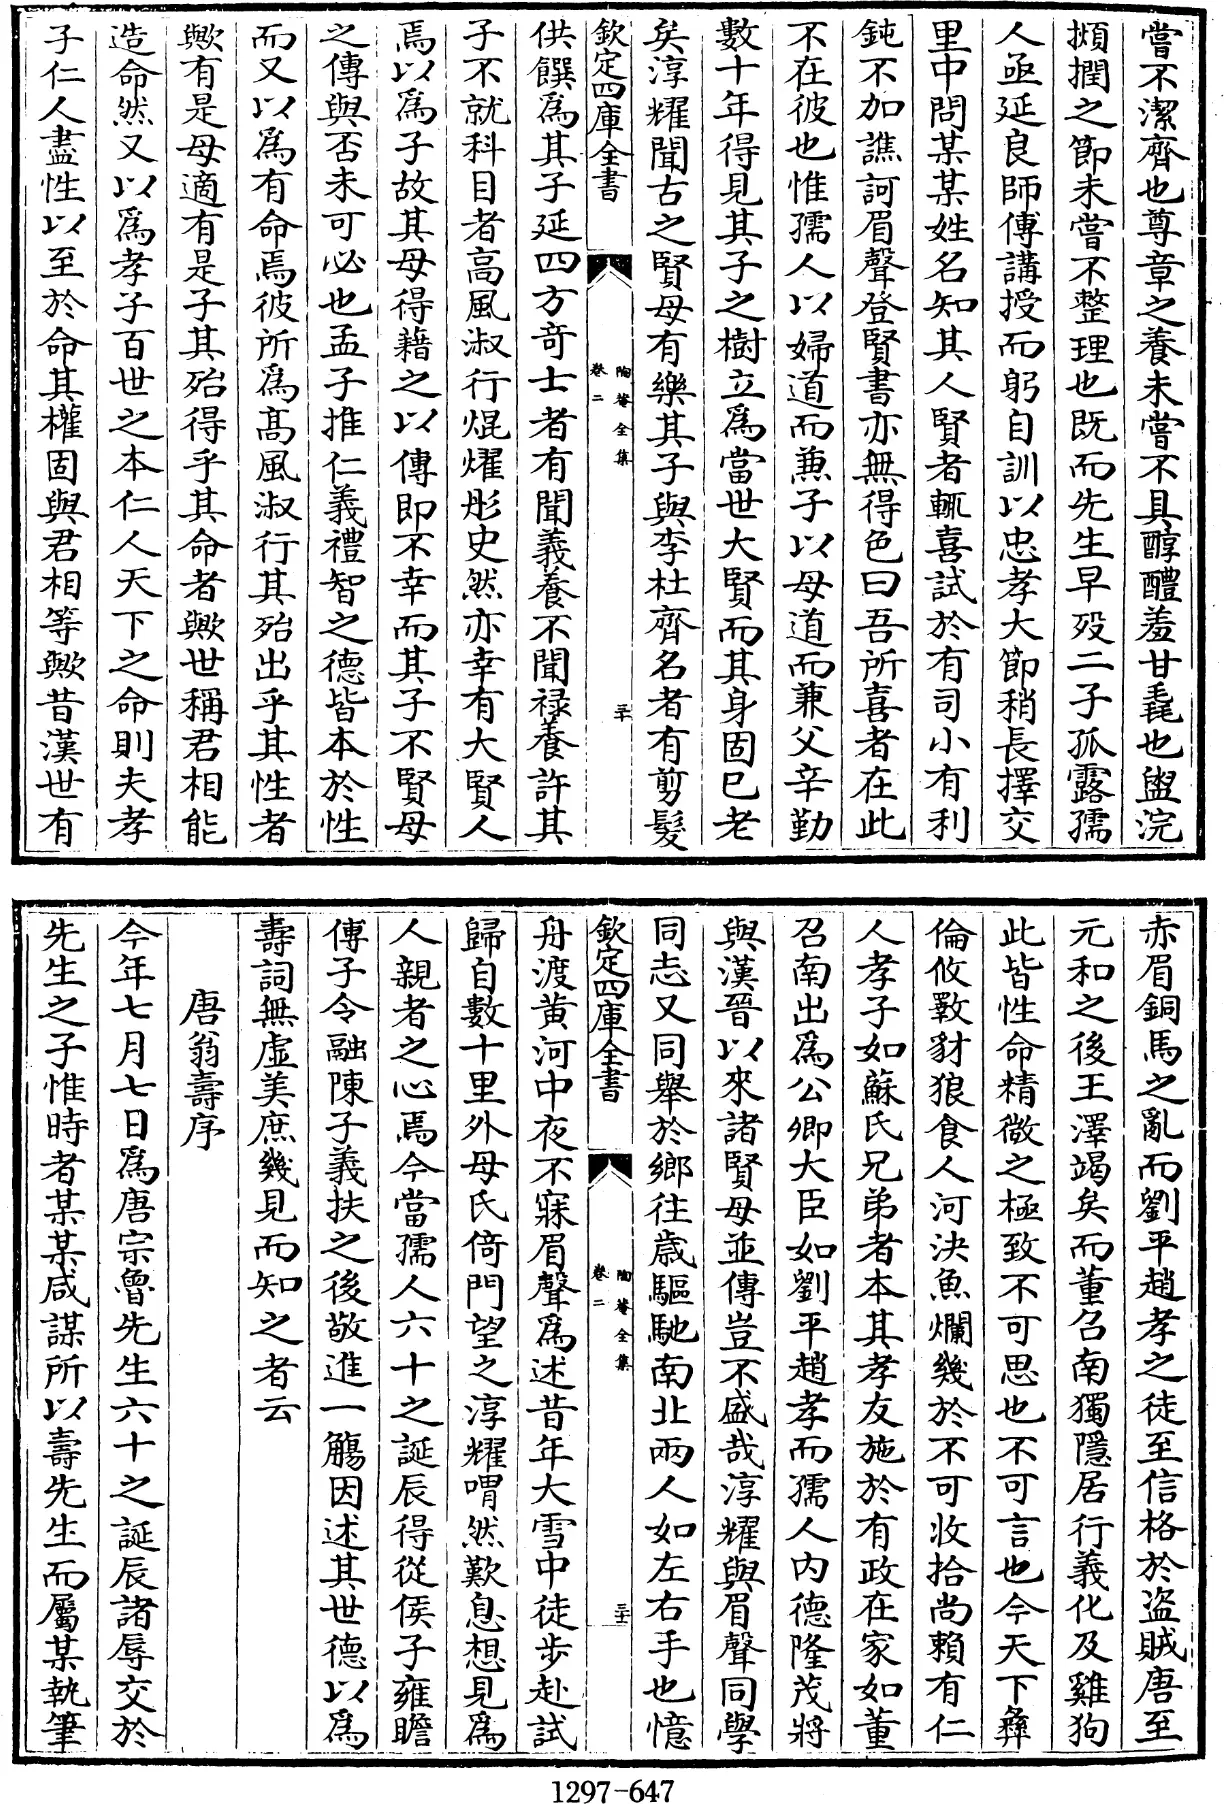 嘗不潔齊也尊章之養未嘗不具醇醴羞甘毳也盥浣
頮撋之節未嘗不整理也既而先生早歿二子孤露孺
人亟延良師傅講授而躬自訓以忠孝大節稍長擇交
里中問某某姓名知其人賢者輒喜試於有司小有利
鈍不加譙訶眉聲登賢書亦無得色曰吾所喜者在此
不在彼也惟孺人以婦道而兼子以母道而兼父辛勤
數十年得見其子之樹立為當世大賢而其身固已老
矣淳耀聞古之賢母有樂其子與李杜齊名者有剪髮
欽定四庫全書
陶菴全集
卷二
三十
供饌為其子延四方奇士者有聞義養不聞祿養許其
子不就科目者高風淑行焜燿彤史然亦幸有大賢人
焉以為子故其母得藉之以傳即不幸而其子不賢母
之傳與否未可必也孟子推仁義禮智之德皆本於性
而又以為有命焉彼所為高風淑行其殆出乎其性者
歟有是母適有是子其殆得乎其命者歟世稱君相能
造命然又以為孝子百世之本仁人天下之命則夫孝
子仁人盡性以至於命其權固與君相等歟昔漢世有
赤眉銅馬之亂而劉平趙孝之徒至信格於盜賊唐至
元和之後王澤竭矣而董召南獨隱居行義化及雞狗
此皆性命精微之極致不可思也不可言也今天下彝
倫攸斁豺狼食人河決魚爛幾於不可收拾尚賴有仁
人孝子如蘇氏兄弟者本其孝友施於有政在家如董
召南出為公卿大臣如劉平趙孝而孺人內德隆茂將
與漢晉以來諸賢母並傳豈不盛哉淳耀與眉聲同學
同志又同舉於鄉往歲驅馳南北兩人如左右手也憶
欽定四庫全書
陶菴全集
卷二
三十一
舟渡黃河中夜不寐眉聲為述昔年大雪中徒步赴試
歸自數十里外母氏倚門望之淳耀喟然歎息想見為
人親者之心焉今當孺人六十之誕辰得從侯子雍瞻
傅子令融陳子義扶之後敬進一觴因述其世德以為
壽詞無虛美庶幾見而知之者云
唐翁壽序
今年七月七日為唐宗魯先生六十之誕辰諸辱交於
先生之子惟時者某某咸謀所以壽先生而屬某執筆
1297-647